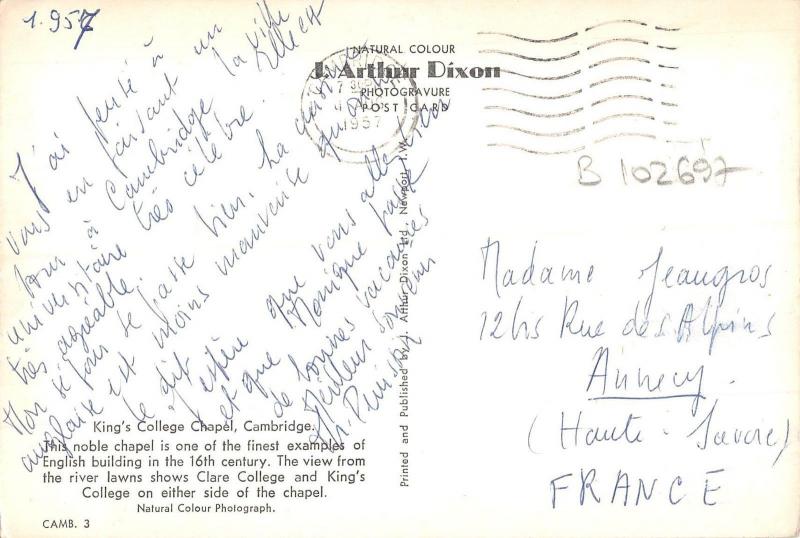 1.957
J'ai pensé à un
vous en faisant un
tour à Cambridge la ville
universitaire très célèbre. Elle est
très agréable.
Mon séjour se passe bien. La cuisine
anglaise est moins mauvaise qu'on
le dit.
J'espère que vous allez bien
et que Monique passe
de bonnes vacances
Meilleur souvenir
King's College Chapel, Cambridge.
This noble chapel is one of the finest examples of
English building in the 16th century. The view from
the river lawns shows Clare College and King's
College on either side of the chapel.
Natural Colour Photograph.
CAMB. 3
NATURAL COLOUR
J. Arthur Dixon
PHOTOGRAVURE
POST CARD
1957
Printed and Published by J. Arthur Dixon Ltd. Newport, I.W.
B 102697
Madame Jeangros
12bis Rue des Alpins
Annecy.
(Haute-Savoie)
FRANCE